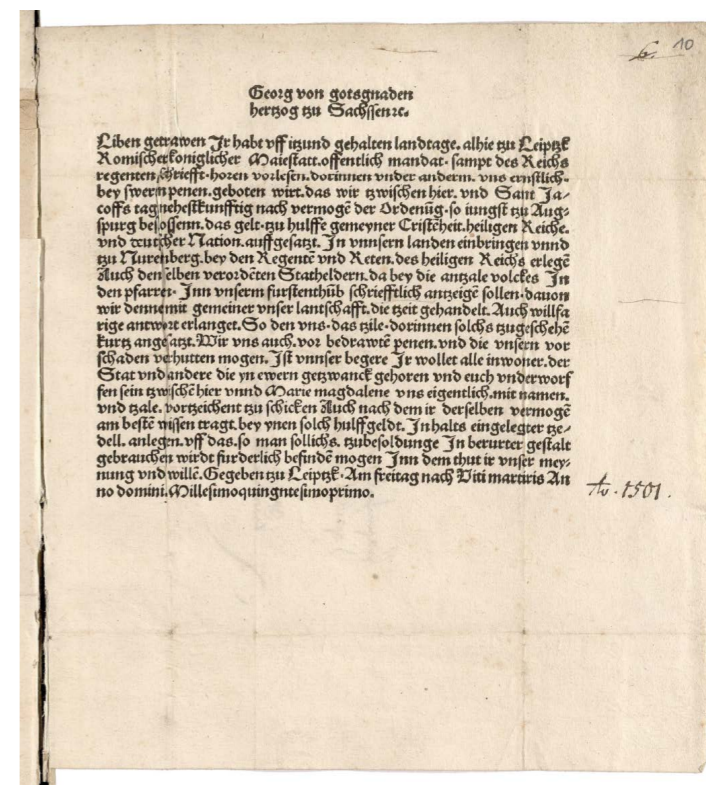 6. 10
Georg von gotsgnaden
hertzog tzu Sachssenꝛc.
Liben getrawen Jr habt vff itzund gehalten landtage. alhie tzu Leiptzk
Romischerkoniglicher Maiestatt.offentlich mandat. sampt des Reichs
regenten schriefft.horen vorlesen.dorinnen vnder anderm. vns ernstlich.
bey swern penen. geboten wirt.das wir tzwischen hier. vnd Sant Ja-
coffs tag nehestkunfftig nach vermogē der Ordenūg.so iungst tzu Aug-
spurg beslossenn.das gelt.tzu hulffe gemeyner Cristēheit.heiligen Reiche.
vnd teutscher Nation.auffgesatzt. Jn vnnsern landen einbringen vnnd
tzu Nurenberg.bey den Regentē vnd Reten.des heiligen Reichs erlegē
Auch den selben verordētē Statheldern.da bey die antzale volckes Jn
den pfarren. Jnn vnserm furstenthūb schriefftlich antzeigē sollen.dauon
wir dennemit gemeiner vnser lantschafft.die tzeit gehandelt. Auch willfa
rige antwort erlanget.So den vns.das tzile.dorinnen solchs tzugeschehē
kurtz angesatzt.Wir vns auch.vor bedrawtē penen.vnd die vnsern vor
schaden vorhutten mogen. Jst vnnser begere Jr wollet alle inwoner.der
Stat vnd andere die yn ewern getzwanck gehoren vnd euch vnderworf
fen sein tzwischē hier vnnd Marie magdalene vns eigentlich.mit namen.
vnd tzale.vortzeichent tzu schicken Auch nach dem ir derselben vermogē
am bestē wissen tragt.bey ynen solch hulffgeldt. Jnhalts eingelegter tze-
dell. anlegen.vff das.so man sollichs. tzubesoldunge Jn berurter gestalt
gebrauchen wirdt furderlich befindē mogen Jnn dem thut ir vnser mey-
nung vnd willē.Gegeben tzu Leiptzk.Am freitag nach Viti martiris An
no domini.Millesimoquingntesimoprimo.
Ao. 1501.